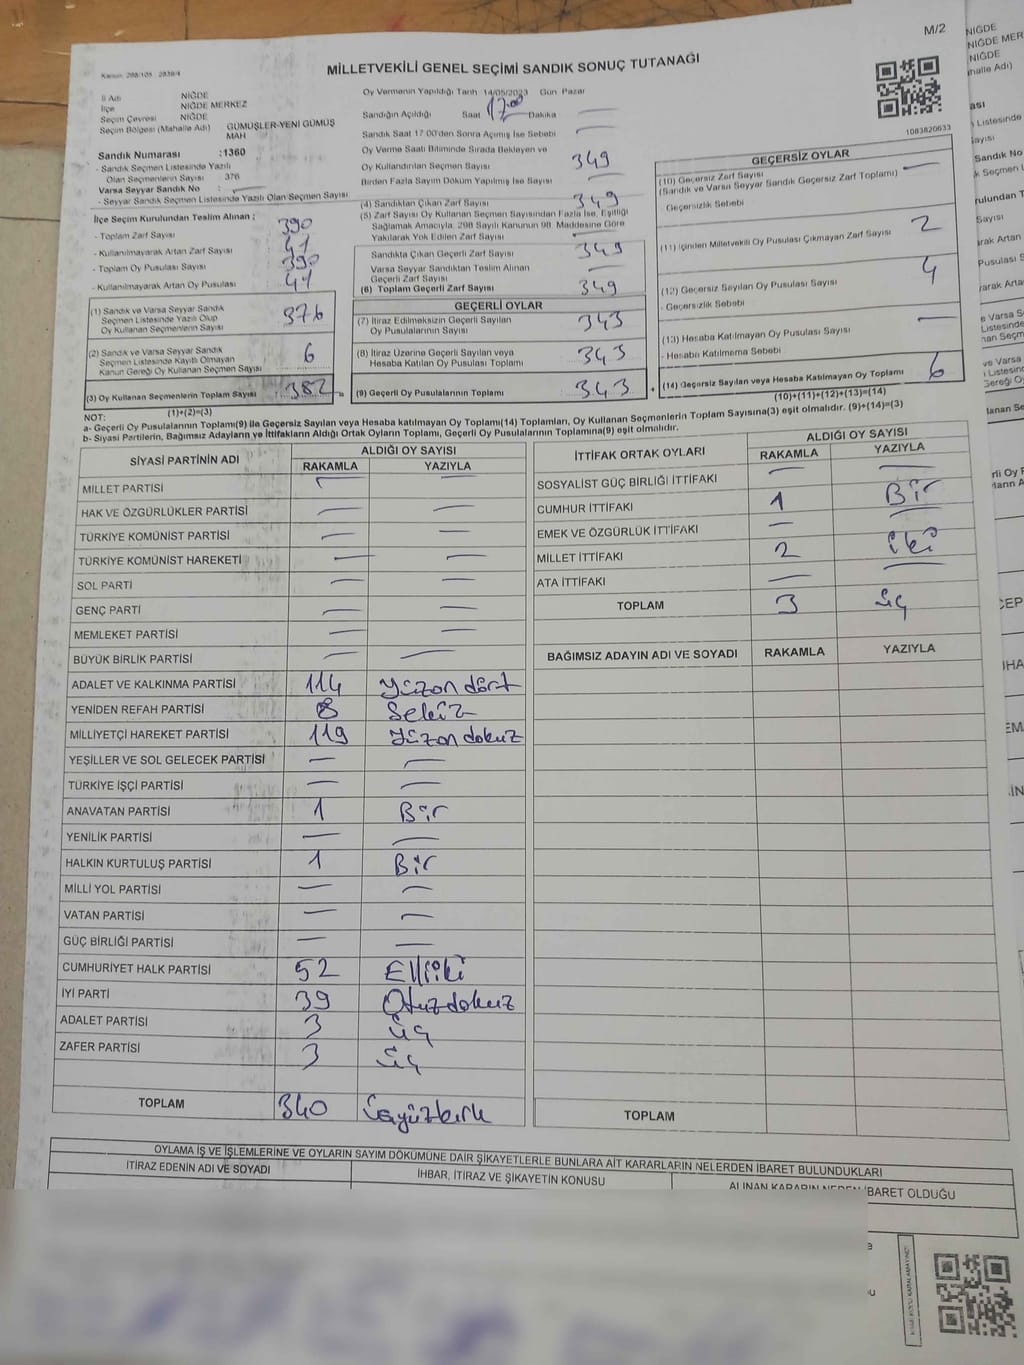 M/2
Kanun: 298/105 - 2839/4
MİLLETVEKİLİ GENEL SEÇİMİ SANDIK SONUÇ TUTANAĞI
İl Adı NİĞDE
İlçe NİĞDE MERKEZ
Seçim Çevresi NİĞDE
Seçim Bölgesi (Mahalle Adı) GÜMÜŞLER-YENİ GÜMÜŞ MAH
Sandık Numarası :1360
- Sandık Seçmen Listesinde Yazılı
Olan Seçmenlerin Sayısı 376
Varsa Seyyar Sandık No :
- Seyyar Sandık Seçmen Listesinde Yazılı Olan Seçmen Sayısı
İlçe Seçim Kurulundan Teslim Alınan :
- Toplam Zarf Sayısı 390
- Kullanılmayarak Artan Zarf Sayısı 41
- Toplam Oy Pusulası Sayısı 390
- Kullanılmayarak Artan Oy Pusulası 41
(1) Sandık ve Varsa Seyyar Sandık
Seçmen Listesinde Yazılı Olup
Oy Kullanan Seçmenlerin Sayısı 376
(2) Sandık ve Varsa Seyyar Sandık
Seçmen Listesinde Kayıtlı Olmayan
Kanun Gereği Oy Kullanan Seçmen Sayısı 6
(3) Oy Kullanan Seçmenlerin Toplam Sayısı 382
(1)+(2)=(3)
Oy Vermenin Yapıldığı Tarih 14/05/2023 Gün Pazar
Sandığın Açıldığı Saat 17.00 Dakika
Sandık Saat 17:00'den Sonra Açılmış İse Sebebi
Oy Verme Saati Bitiminde Sırada Bekleyen ve
Oy Kullandırılan Seçmen Sayısı 349
Birden Fazla Sayım Döküm Yapılmış İse Sayısı
(4) Sandıktan Çıkan Zarf Sayısı 349
(5) Zarf Sayısı Oy Kullanan Seçmen Sayısından Fazla İse, Eşitliği
Sağlamak Amacıyla, 298 Sayılı Kanunun 98. Maddesine Göre
Yakılarak Yok Edilen Zarf Sayısı
Sandıkta Çıkan Geçerli Zarf Sayısı 349
Varsa Seyyar Sandıktan Teslim Alınan
Geçerli Zarf Sayısı
(6) Toplam Geçerli Zarf Sayısı 349
GEÇERLİ OYLAR
(7) İtiraz Edilmeksizin Geçerli Sayılan
Oy Pusulalarının Sayısı 343
(8) İtiraz Üzerine Geçerli Sayılan veya
Hesaba Katılan Oy Pusulası Toplamı 343
(9) Geçerli Oy Pusulalarının Toplamı 343
1083820633
GEÇERSİZ OYLAR
(10) Geçersiz Zarf Sayısı
(Sandık ve Varsa Seyyar Sandık Geçersiz Zarf Toplamı)
- Geçersizlik Sebebi
(11) İçinden Milletvekili Oy Pusulası Çıkmayan Zarf Sayısı 2
(12) Geçersiz Sayılan Oy Pusulası Sayısı 4
- Geçersizlik Sebebi
(13) Hesaba Katılmayan Oy Pusulası Sayısı
- Hesaba Katılmama Sebebi
(14) Geçersiz Sayılan veya Hesaba Katılmayan Oy Toplamı 6
(10)+(11)+(12)+(13)=(14)
NOT:
a- Geçerli Oy Pusulalarının Toplamı(9) ile Geçersiz Sayılan veya Hesaba katılmayan Oy Toplamı(14) Toplamları, Oy Kullanan Seçmenlerin Toplam Sayısına(3) eşit olmalıdır. (9)+(14)=(3)
b- Siyasi Partilerin, Bağımsız Adayların ve İttifakların Aldığı Ortak Oyların Toplamı, Geçerli Oy Pusulalarının Toplamına(9) eşit olmalıdır.
SİYASİ PARTİNİN ADI ALDIĞI OY SAYISI
RAKAMLA YAZIYLA
MİLLET PARTİSİ
HAK VE ÖZGÜRLÜKLER PARTİSİ
TÜRKİYE KOMÜNİST PARTİSİ
TÜRKİYE KOMÜNİST HAREKETİ
SOL PARTİ
GENÇ PARTİ
MEMLEKET PARTİSİ
BÜYÜK BİRLİK PARTİSİ
ADALET VE KALKINMA PARTİSİ 114 Yüzon dört
YENİDEN REFAH PARTİSİ 8 Sekiz
MİLLİYETÇİ HAREKET PARTİSİ 119 Yüzon dokuz
YEŞİLLER VE SOL GELECEK PARTİSİ
TÜRKİYE İŞÇİ PARTİSİ
ANAVATAN PARTİSİ 1 Bir
YENİLİK PARTİSİ
HALKIN KURTULUŞ PARTİSİ 1 Bir
MİLLİ YOL PARTİSİ
VATAN PARTİSİ
GÜÇ BİRLİĞİ PARTİSİ
CUMHURİYET HALK PARTİSİ 52 Elliiki
İYİ PARTİ 39 Otuzdokuz
ADALET PARTİSİ 3 üç
ZAFER PARTİSİ 3 üç
TOPLAM 340 üçyüzkırk
İTTİFAK ORTAK OYLARI ALDIĞI OY SAYISI
RAKAMLA YAZIYLA
SOSYALİST GÜÇ BİRLİĞİ İTTİFAKI
CUMHUR İTTİFAKI 1 Bir
EMEK VE ÖZGÜRLÜK İTTİFAKI
MİLLET İTTİFAKI 2 iki
ATA İTTİFAKI
TOPLAM 3 üç
BAĞIMSIZ ADAYIN ADI VE SOYADI RAKAMLA YAZIYLA
TOPLAM
OYLAMA İŞ VE İŞLEMLERİNE VE OYLARIN SAYIM DÖKÜMÜNE DAİR ŞİKAYETLERLE BUNLARA AİT KARARLARIN NELERDEN İBARET BULUNDUKLARI
İTİRAZ EDENİN ADI VE SOYADI İHBAR, İTİRAZ VE ŞİKAYETİN KONUSU ALINAN KARARIN NEDEN İBARET OLDUĞU
NİĞDE
NİĞDE MER
NİĞDE
Sandık No